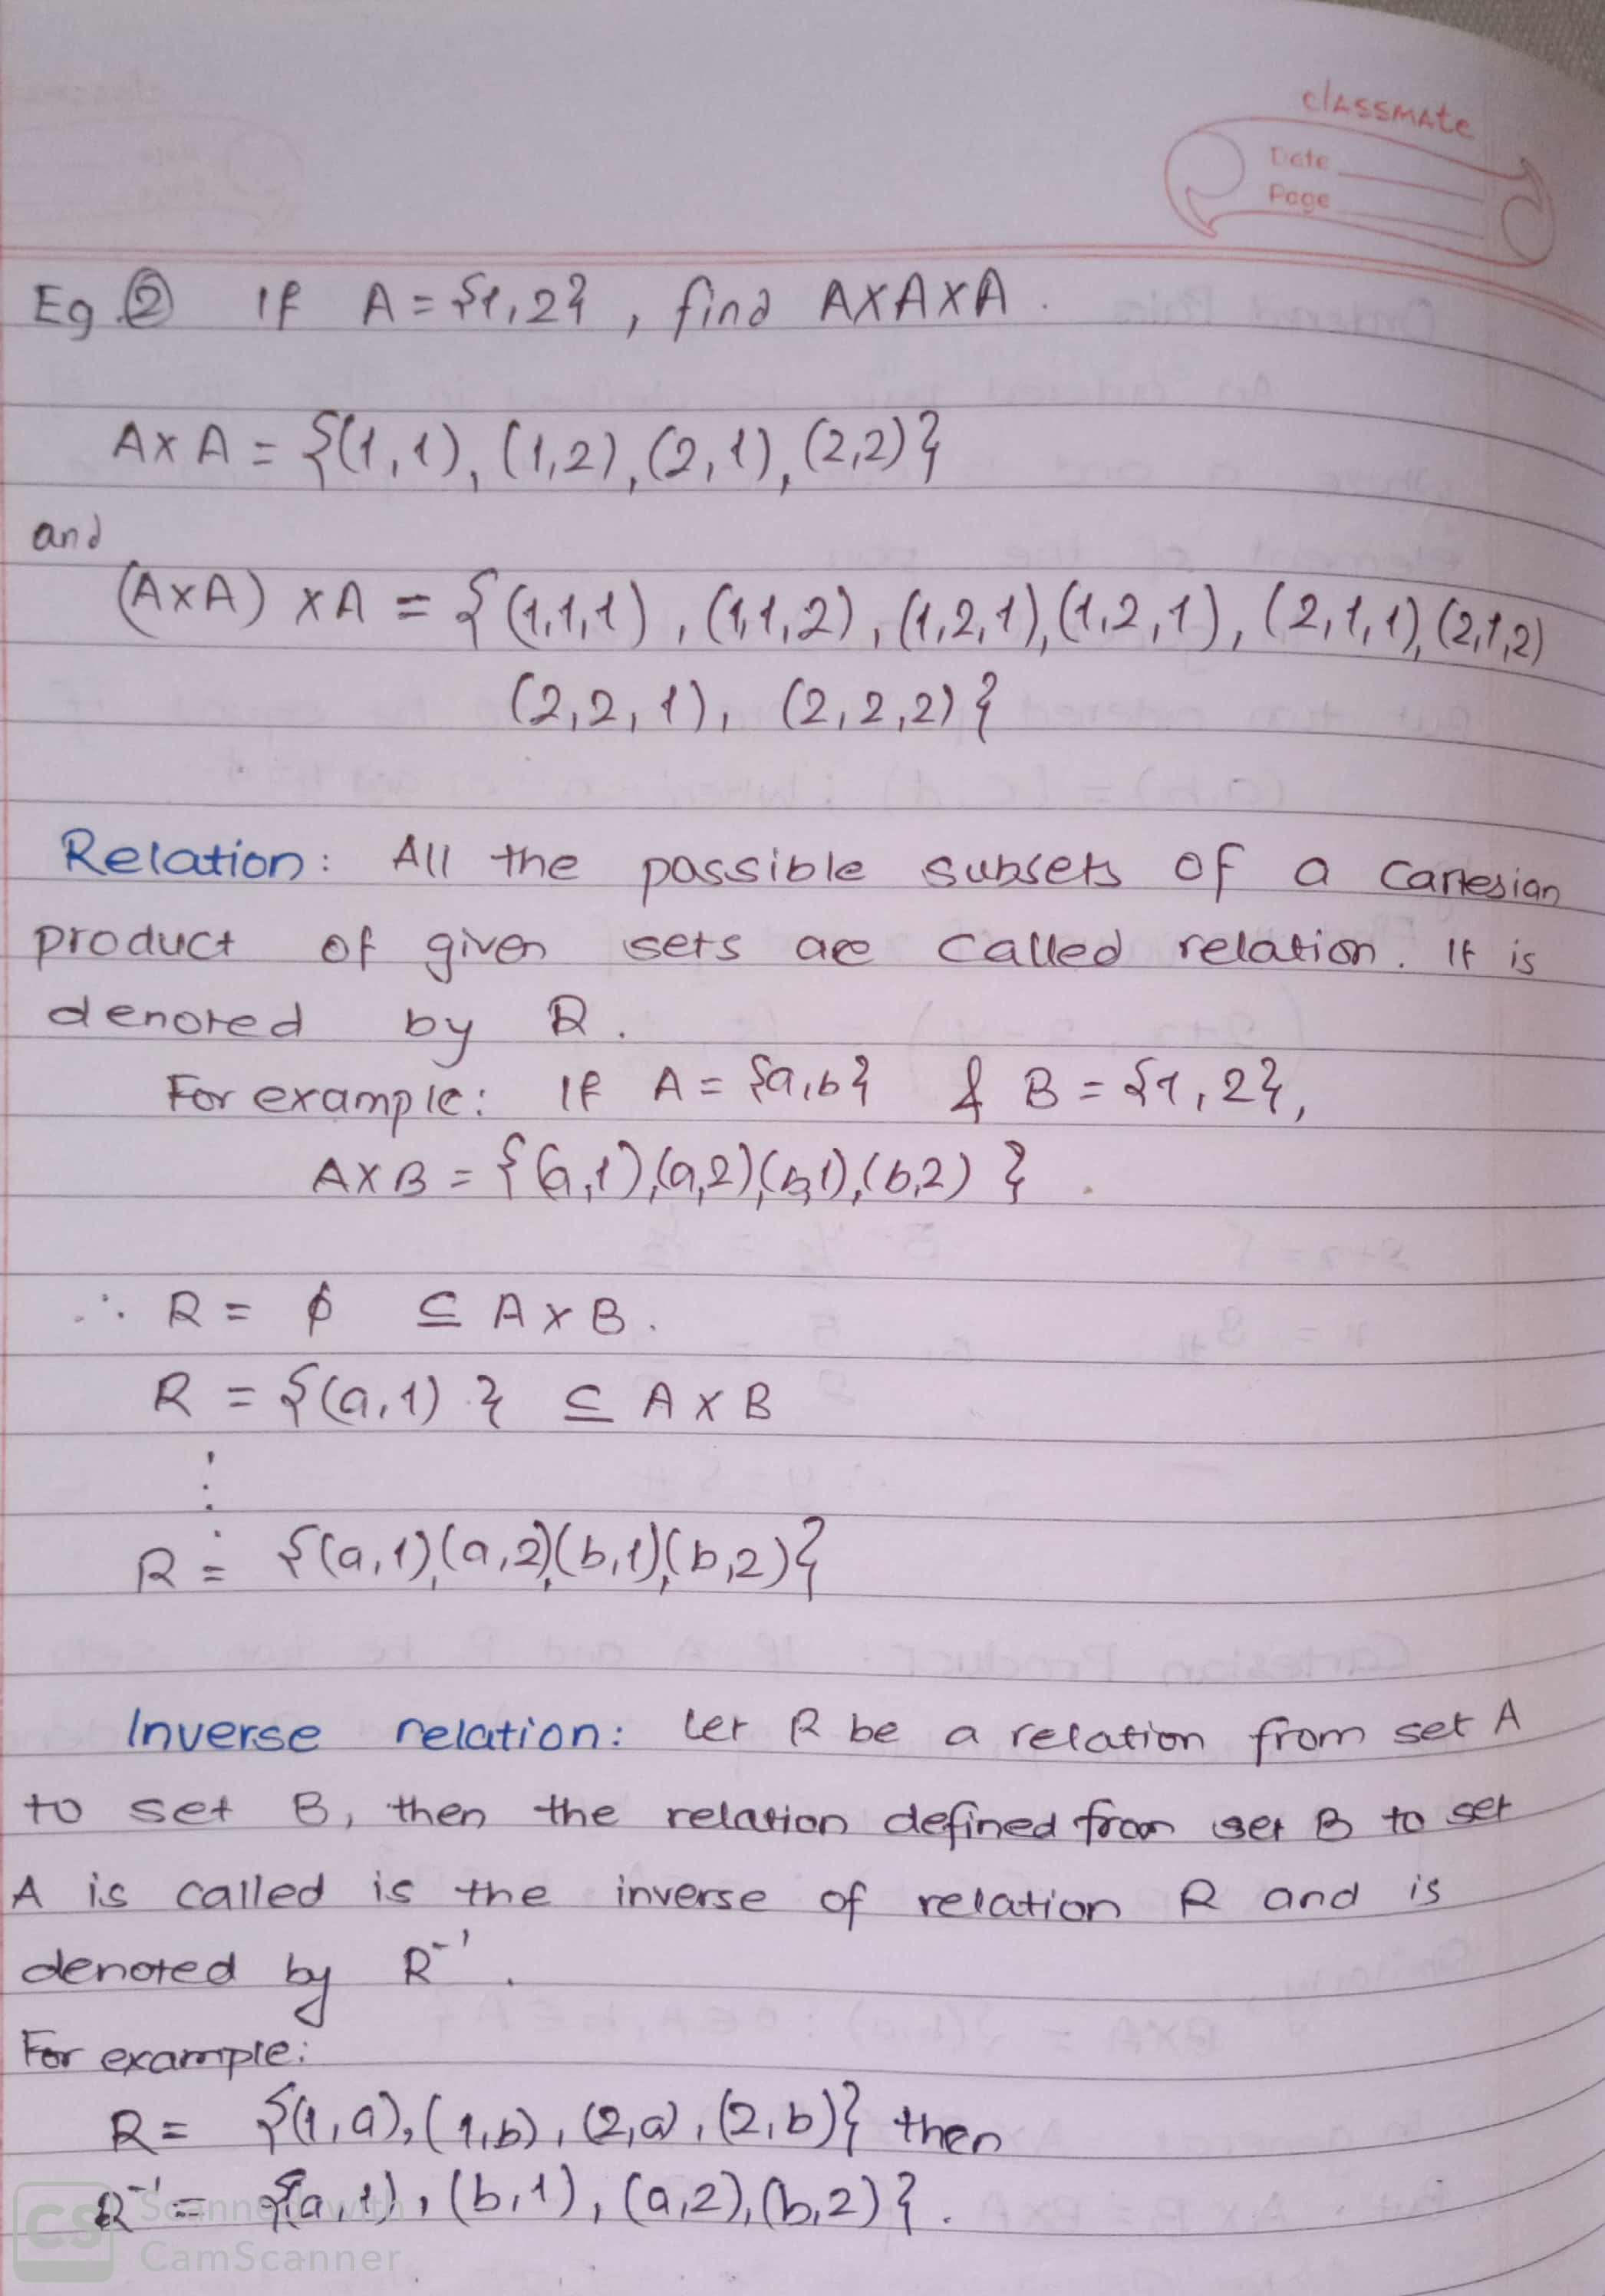 classmate
Date
Page
Eg ② If A = {1,2} , find A×A×A .
A×A = {(1,1), (1,2), (2,1), (2,2)}
and
(A×A) ×A = { (1,1,1) , (1,1,2) , (1,2,1), (1,2,1), (2,1,1), (2,1,2)
(2,2,1), (2,2,2) }
Relation: All the possible subsets of a Cartesian
product of given sets are called relation. It is
denoted by R.
For example: If A = {a,b} & B = {1,2},
A×B = { (a,1),(a,2),(b,1),(b,2) }
∴ R = ϕ ⊆ A×B.
R = {(a,1)} ⊆ A×B
⋮
R = {(a,1),(a,2),(b,1),(b,2)}
Inverse relation: Let R be a relation from set A
to set B, then the relation defined from set B to set
A is called is the inverse of relation R and is
denoted by R⁻¹.
For example:
R = {(1,a), (1,b), (2,a), (2,b)} then
R⁻¹ = {(a,1), (b,1), (a,2), (b,2)}.
CS Scanned with
CamScanner